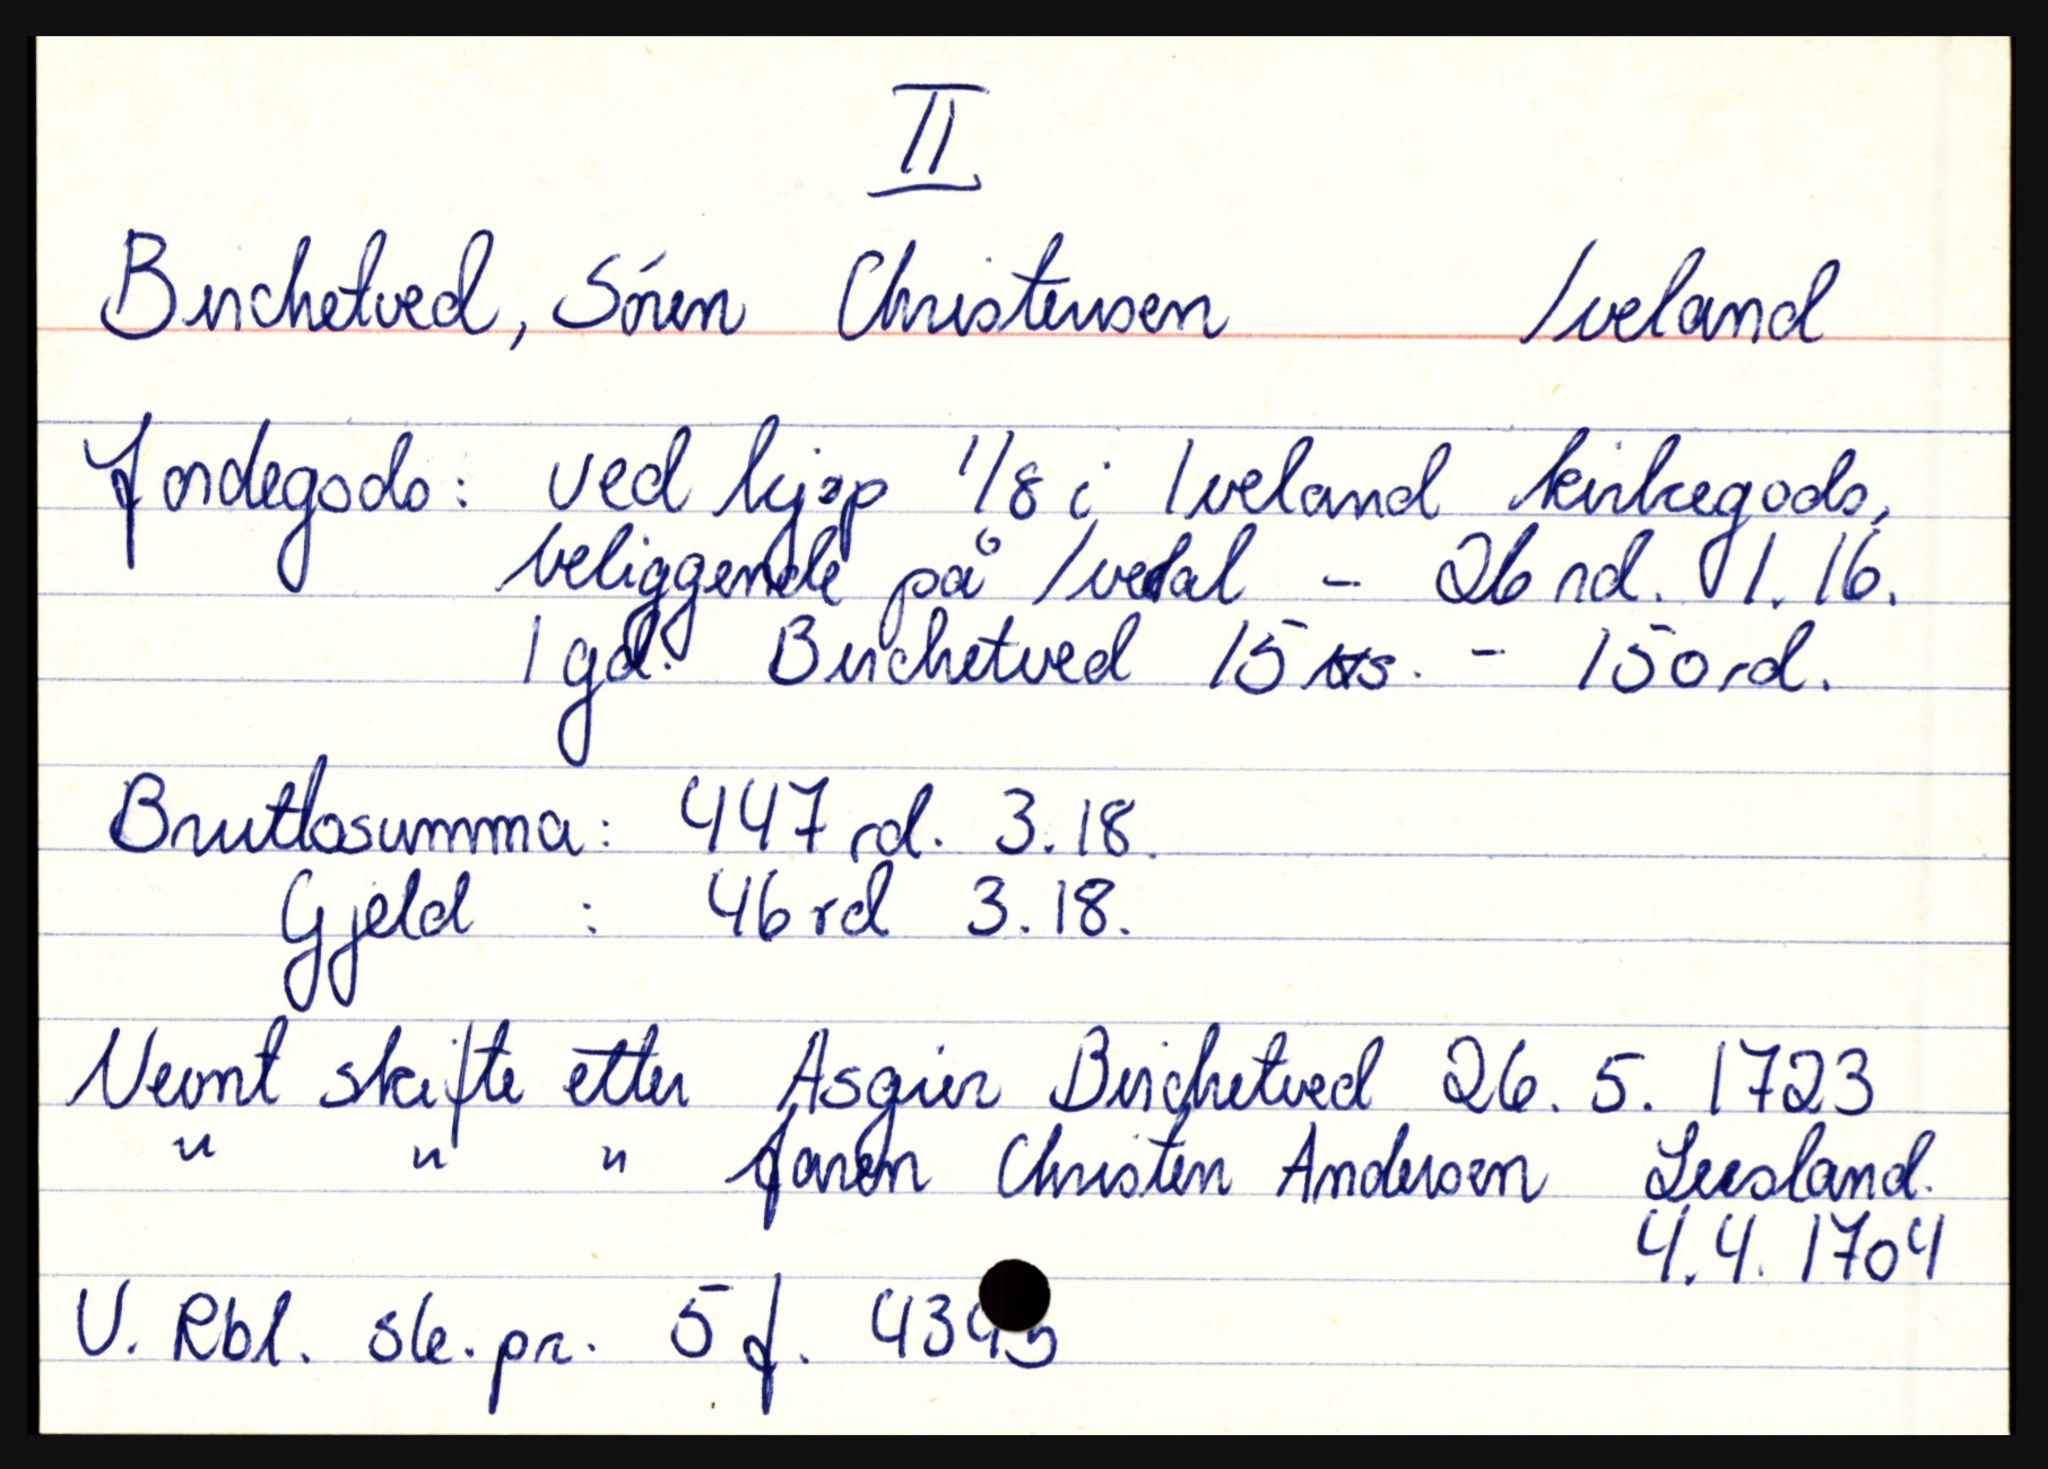 II
Birchetved, Sören Christensen Iveland
Jordegods: ved kjøp 1/8 i Iveland kirkegods,
beliggende på Ivedal - 26 rd. 1. 16.
1 gd. Birchetved 15 - 150 rd.
Bruttosumma: 447 rd. 3. 18.
Gjeld : 46 rd 3. 18.
Nevnt skifte etter Asgier Birchetved 26. 5. 1723
" " " faren Christen Andersen
4. 4. 1704
V. Rbl. sk. pr. 5 f.